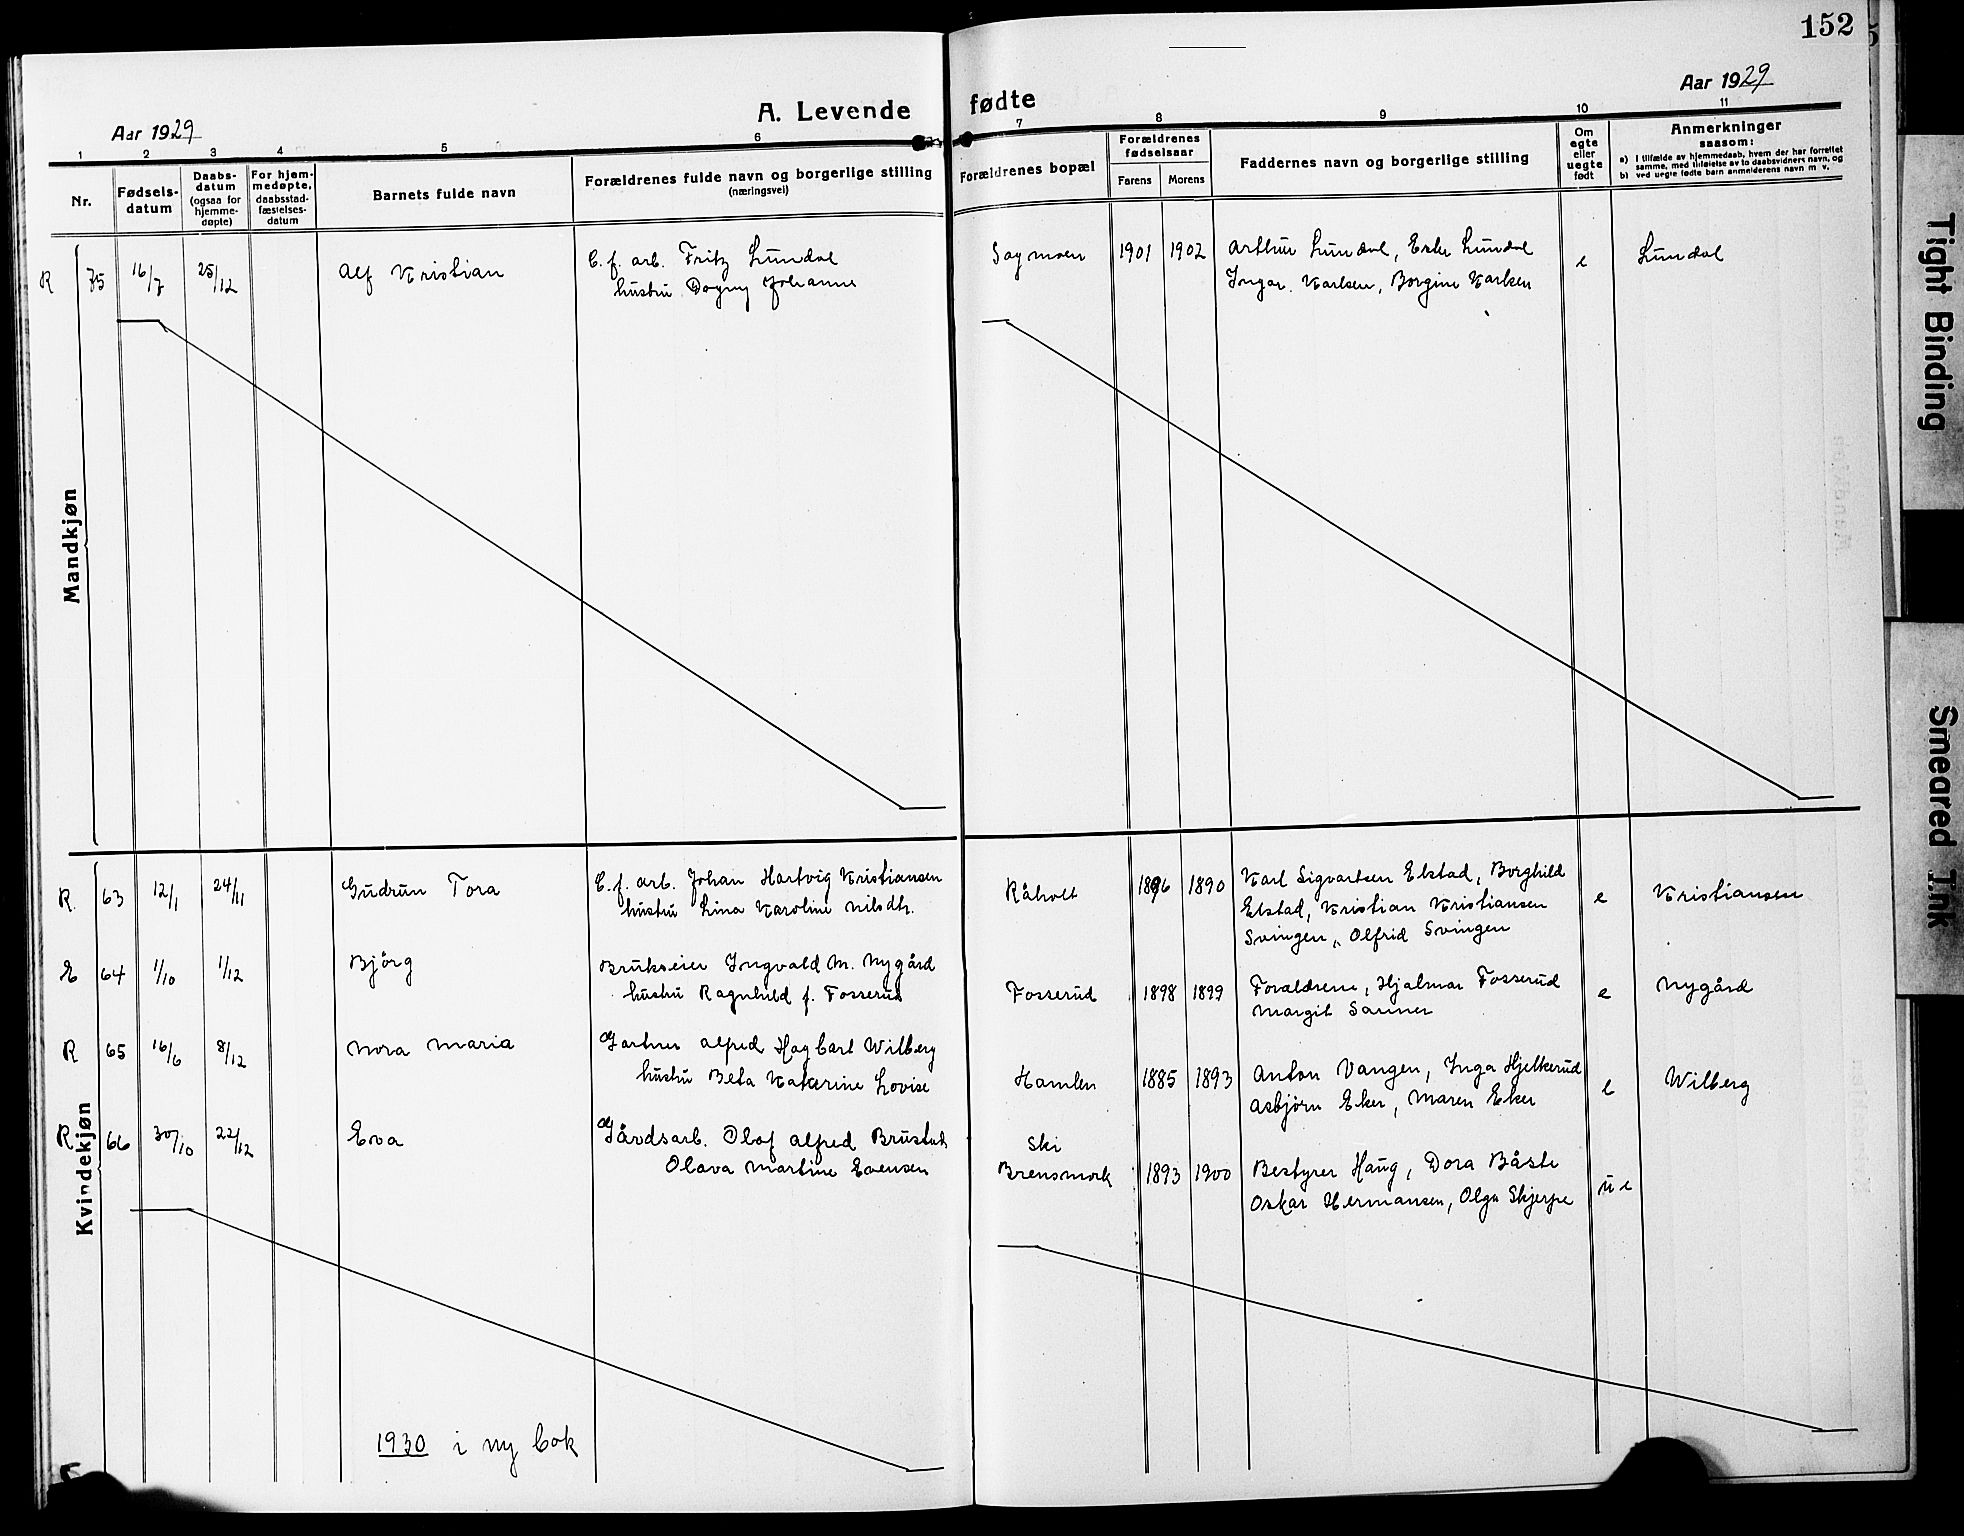 152
Aar 1929
A. Levende fødte
Aar 1929
1 2 3 4 5 6 7 8 9 10 11
Nr.
Fødsels-
datum
Daabs-
datum
(ogsaa for
hjemme-
døpte)
For hjem-
medøpte,
daabsstad-
fæstelses-
datum
Barnets fulde navn
Forældrenes fulde navn og borgerlige stilling
(næringsvei)
Forældrenes bopæl
Forældrenes
fødselsaar
Farens Morens
Faddernes navn og borgerlige stilling
Om
egte
eller
uegte
født
Anmerkninger
saasom:
a) i tilfælde av hjemmedaab, hvem der har forrettet
samme, med tilføielse av to daabsvidners navn, og
b) ved uegte fødte barn anmelderens navn m. v.
Mandkjøn
R 75 16/7 25/12 Alf Kristian
E. f. arb. Fritz Lundal
hustru Dagny Johanne
Sagmoen 1901 1902
Arthur Lundal, Lundal
Ingar Karlsen, Borgine Karlsen
e Lundal
Kvindekjøn
R 63 12/1 24/11 Gudrun Tora
E. f. arb. Johan Hartvig Kristiansen
hustru Lina Karoline Nilsdtr.
Råholt 1896 1890
Karl Sigvartsen Elstad, Borghild
Elstad, Kristian Kristiansen
Svingen, Olfrid Svingen
e Kristiansen
E 64 1/10 1/12 Bjørg
Brukseier Ingvald M. Nygård
hustru Ragnhild f. Fosserud
Fosserud 1898 1899
Forældrene, Hjalmar Fosserud
Margit Sanner
e Nygård
R 65 16/6 8/12 Nora Maria
Gartner Alfred Hagbart Wilberg
hustru Beta Katerine Lovise
Hamlen 1885 1893
Anton Vangen, Inga Hjelkerud
Asbjørn Eker, Maren Eker
e Wilberg
R 66 30/10 22/12 Eva
Gårdsarb. Olof Alfred
Olava Martine Evensen
Ski
Brensmork 1893 1900
Bestyrer Haug, Dora Båste
Oskar Hermansen, Olga Skjerpe
u e
1930 i ny bok
Tight Binding
Smeared Ink